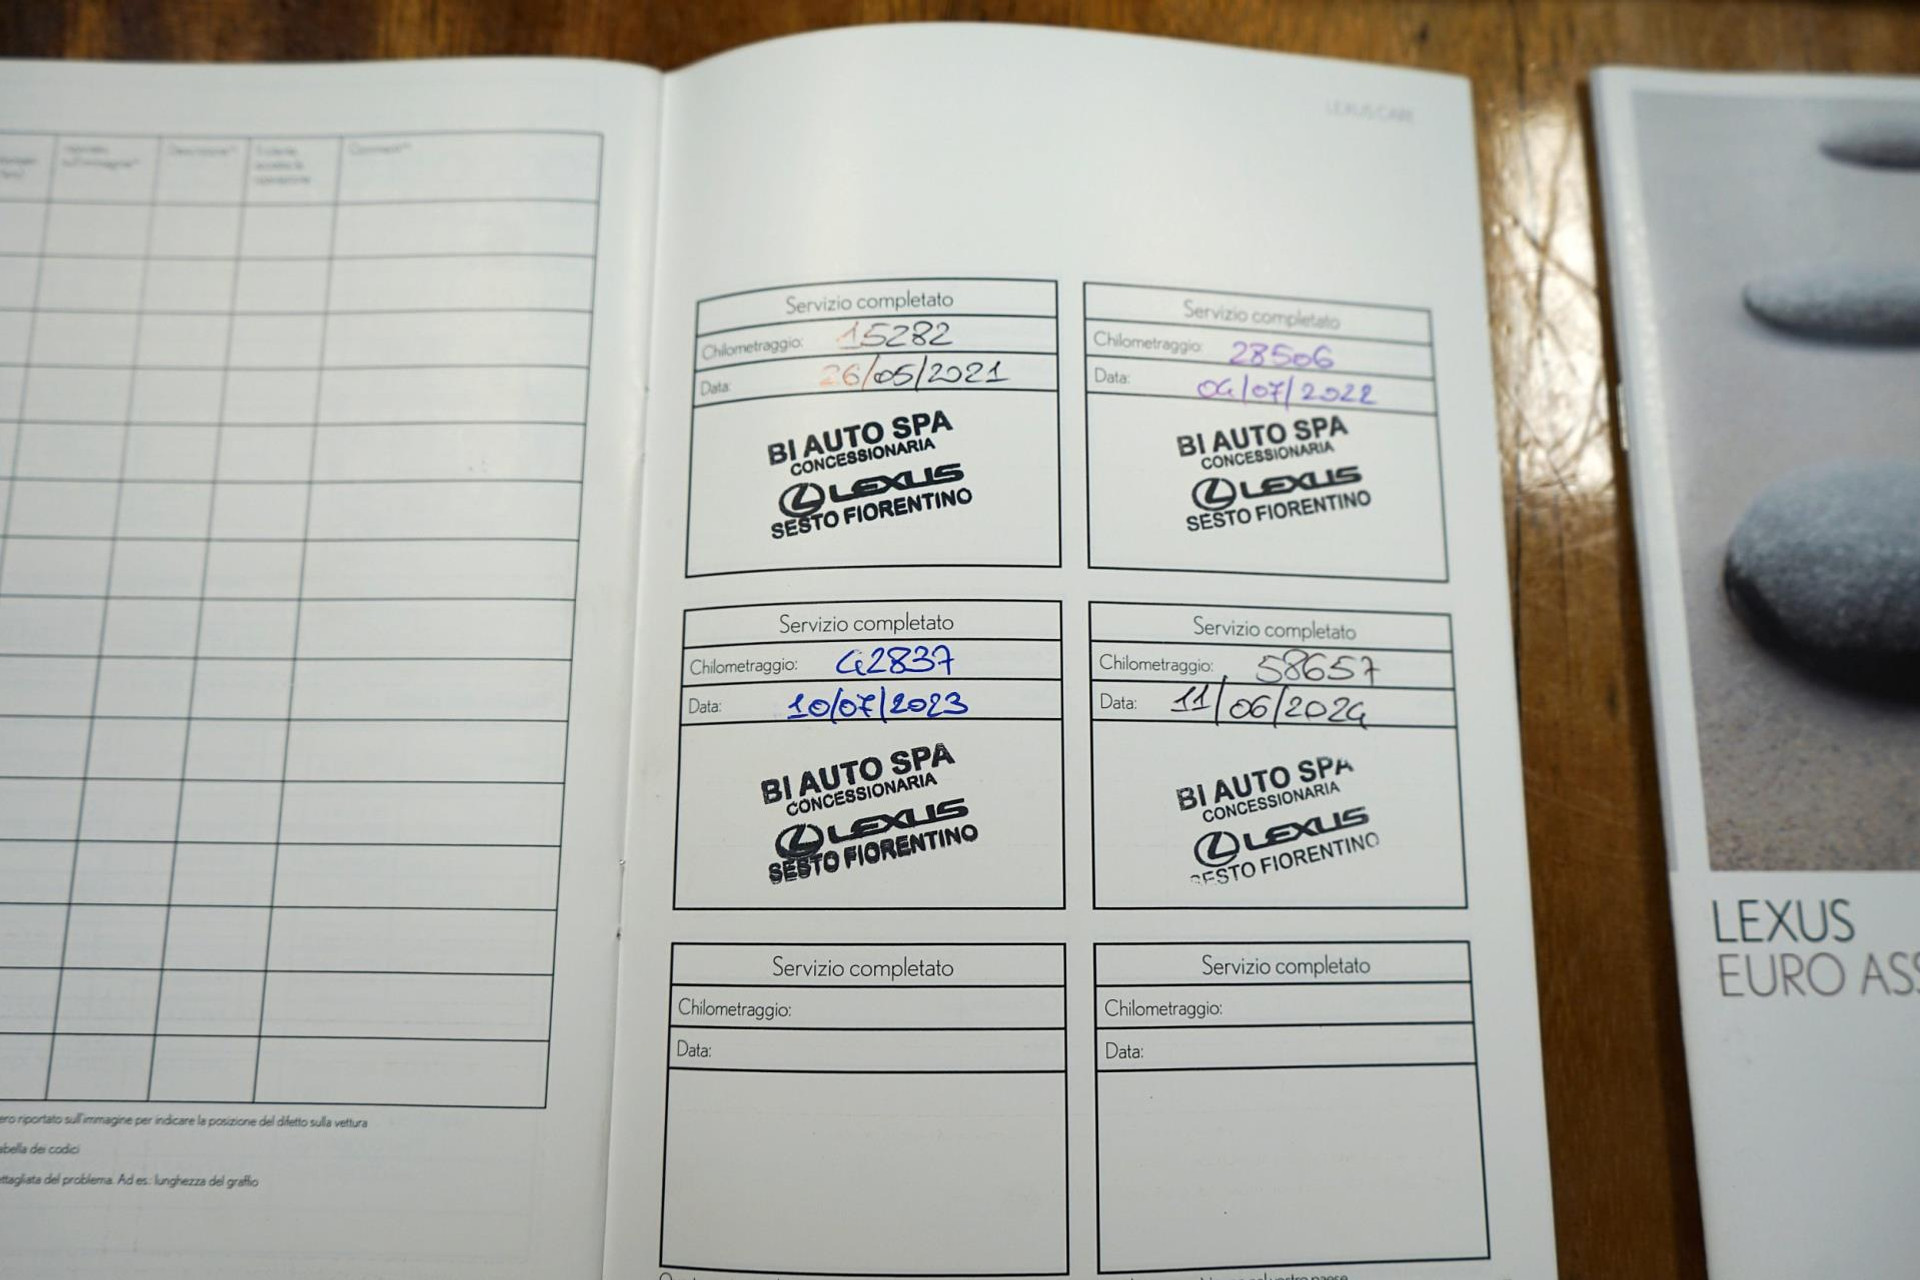 sull'immagine*
Descrizione**
Commenti**
ero riportato sull'immagine per indicare la posizione del difetto sulla vettura
abella dei codici
ettagliata del problema. Ad es.: lunghezza del graffio
LEXUS CARE
Servizio completato
Chilometraggio: 15282
Data: 26/05/2021
BI AUTO SPA
CONCESSIONARIA
LEXUS
SESTO FIORENTINO
Servizio completato
Chilometraggio: 28506
Data: 04/07/2022
BI AUTO SPA
CONCESSIONARIA
LEXUS
SESTO FIORENTINO
Servizio completato
Chilometraggio: 42837
Data: 10/07/2023
BI AUTO SPA
CONCESSIONARIA
LEXUS
SESTO FIORENTINO
Servizio completato
Chilometraggio: 58657
Data: 11/06/2024
BI AUTO SPA
CONCESSIONARIA
LEXUS
SESTO FIORENTINO
Servizio completato
Chilometraggio:
Data:
Servizio completato
Chilometraggio:
Data:
LEXUS
EURO ASS